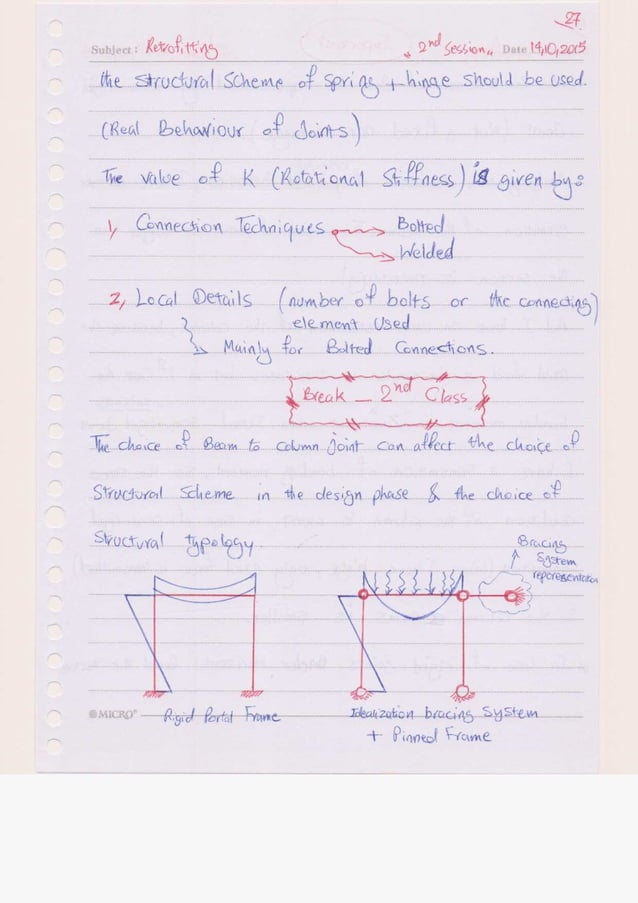 27
Subject: Retrofitting "2nd Session" Date 14,10,2015
the structural scheme of spring + hinge should be used.
(Real Behaviour of Joints)
The value of K (Rotational Stiffness) is given by:
1, Connection Techniques → Bolted
→ Welded
2, Local Details (number of bolts or the connecting)
element used
Mainly for Bolted Connections.
Break - 2nd Class
The choice of Beam to column joint can affect the choice of
structural scheme in the design phase & the choice of
structural typology.
Bracing
System
representation
MICRO Rigid Portal Frame
Idealization bracing system
+ Pinned Frame